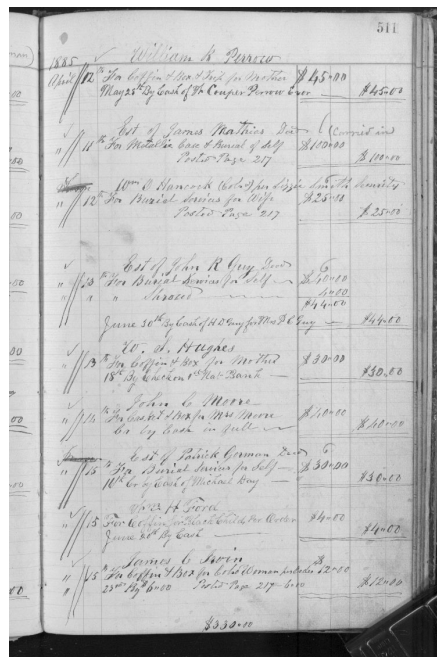 511
1885 William K Perrow
April 12 th For Coffin & Box & Trip for Mother $45.00
May 25th By Cash of Wm Couper Perrow Exor $45.00
Est of James Mathias Decd (Carried in
11 th For Metallic Case & Burial of Self $100.00
Posted Page 217 $100.00
Wm D Hancock (Cold) per Lizzie Smith Society
12 th For Burial Services for Wife $25.00
Posted Page 217 $25.00
Est of John R Guy Decd
13 th For Burial Services for Self $40.00
" " " Shroud 4.00
$44.00
June 30th By Cash of H D Guy for Mrs B C Guy $44.00
W. S. Hughes
13 th For Coffin & Box for Mother $30.00
18th By Check on 1st Nat Bank $30.00
John C Moore
14 th For Casket & Box for Mrs Moore $40.00
Cr by Cash in full $40.00
Est of Patrick Gorman Decd
15 th For Burial Services for Self $30.00
10th Cr by Cash of Michael Day $30.00
H Ford
15 For Coffin for Child Per Order $4.00
June 20th By Cash $4.00
James C Irvin
15 th For Coffin & Box for Cold Woman $12.00
23rd By 6.00 Posted Page 217 6.00 $12.00
$330.00